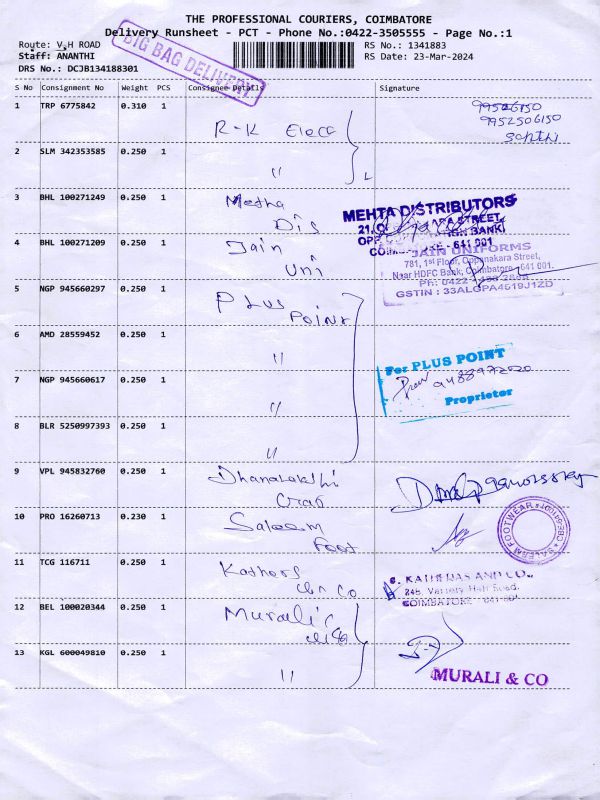 THE PROFESSIONAL COURIERS, COIMBATORE
Delivery Runsheet - PCT - Phone No.:0422-3505555 - Page No.:1
Route: V.H ROAD
RS No.: 1341883
Staff: ANANTHI
RS Date: 23-Mar-2024
DRS No.: DCJB134188301
BIG BAG DELIVERY
S No Consignment No Weight PCS Consignee Details Signature
1 TRP 6775842 0.310 1 R-K Elecc
9952506150
2 SLM 342353585 0.250 1 "
3 BHL 100271249 0.250 1 Metha
Dis
MEHTA DISTRIBUTORS
4 BHL 100271209 0.250 1 Jain
Uni
COIMBATORE - 641 001
JAIN UNIFORMS
781, 1st Floor, Oppanakara Street,
Near HDFC Bank, Coimbatore - 641 001.
GSTIN : 33ALGPA4619J1ZD
5 NGP 945660297 0.250 1 PLUS
POINT
6 AMD 28559452 0.250 1 "
For PLUS POINT
9488972020
Proprietor
7 NGP 945660617 0.250 1 "
8 BLR 5250997393 0.250 1 "
9 VPL 945832760 0.250 1 Dhanalakshi
10 PRO 16260713 0.230 1 Saleem
Foot
SALEEM FOOTWEAR
11 TCG 116711 0.250 1 Kathers
C. KATHERAS AND CO.,
248, Variety Hall Road,
COIMBATORE - 641 001
12 BEL 100020344 0.250 1 Murali
13 KGL 600049810 0.250 1 "
MURALI & CO